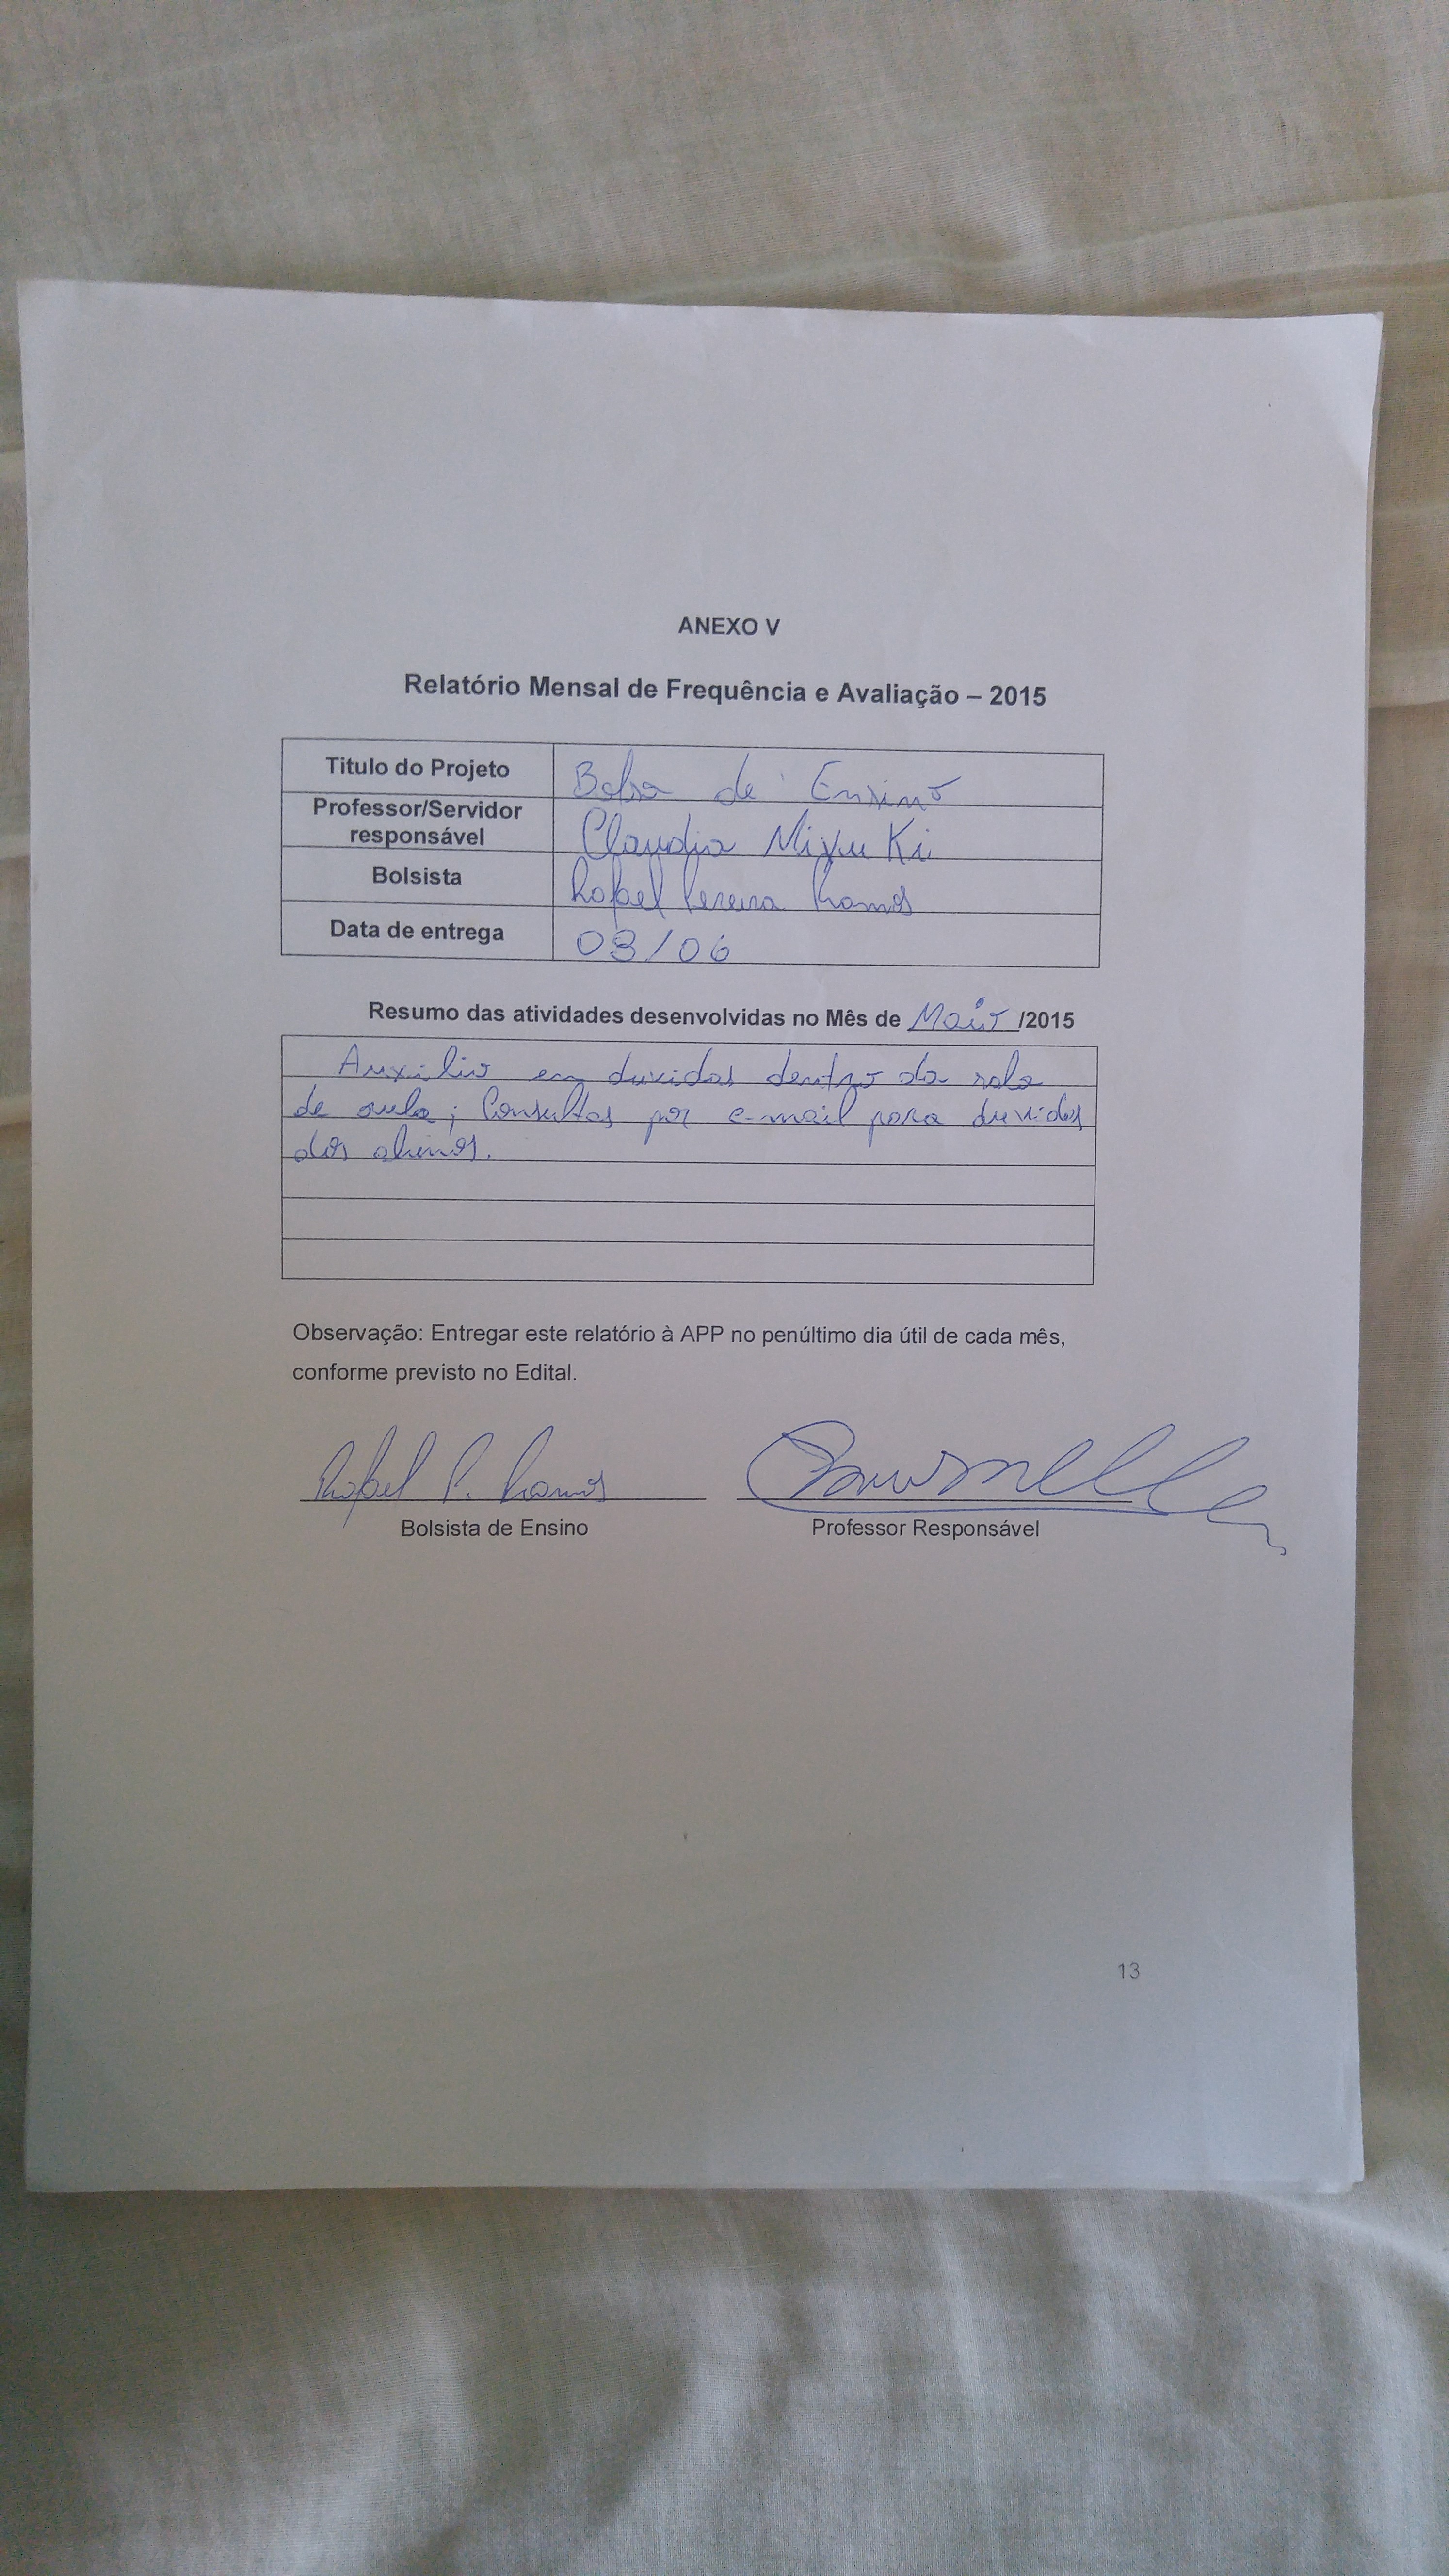 ANEXO V
Relatório Mensal de Frequência e Avaliação – 2015
Titulo do Projeto Bolsa de Ensino
Professor/Servidor
responsável Claudia Miyu Ki
Bolsista Rafael Pereira Ramos
Data de entrega 03/06
Resumo das atividades desenvolvidas no Mês de Maio/2015
Auxilio em duvidas dentro da sala
de aula; Consultas por e-mail para duvidas
dos alunos.
Observação: Entregar este relatório à APP no penúltimo dia útil de cada mês,
conforme previsto no Edital.
Rafael P. Ramos
Bolsista de Ensino Professor Responsável
13